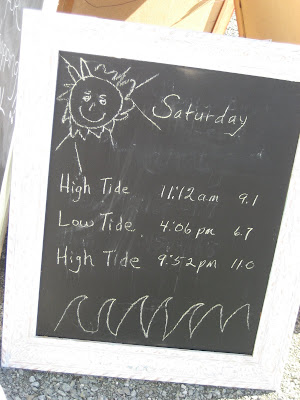 Saturday
High Tide 11:12am 9.1
Low Tide 4:06pm 6.7
High Tide 9:52pm 11.0